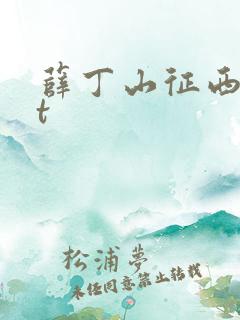 薛丁山征西
t
松浦夢
未经同意禁止转载